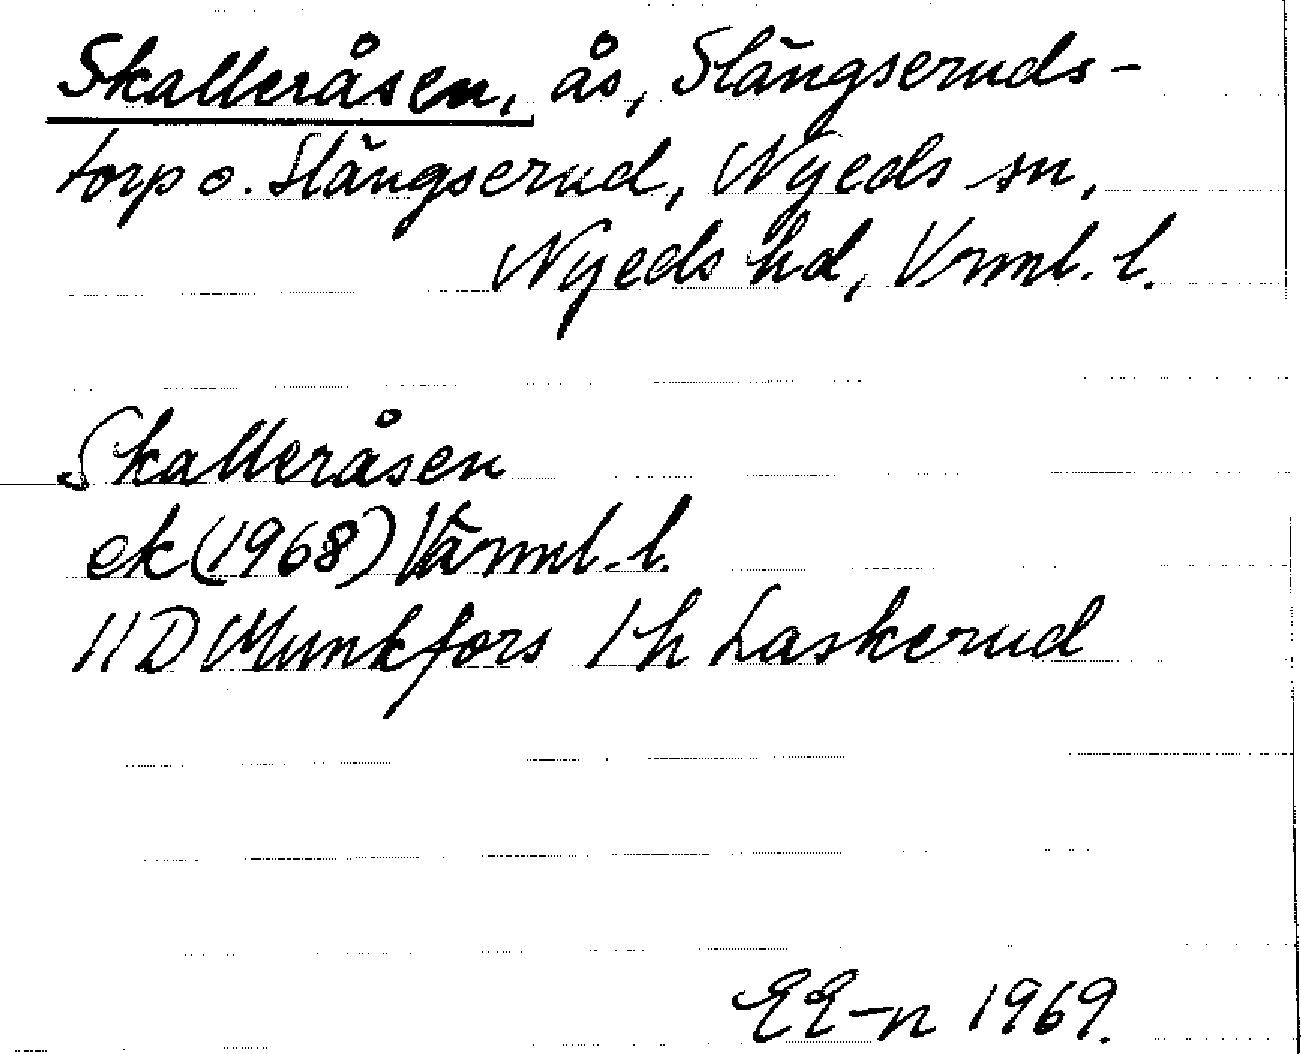 Skalleråsen, ås, Slängseruds-
torp o. Slängserud, Nyeds sn,
Nyeds hd, Vrml. l.
Skalleråsen
ek (1968) Värml. l.
11 D Munkfors 1 h Laskerud
EE-n 1969.